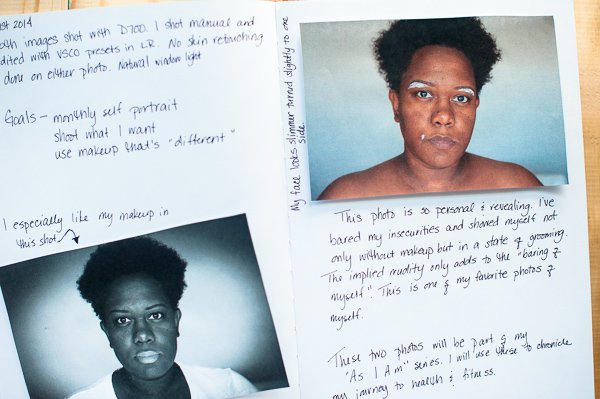 st 2014
oth images shot with D700. I shot manual and
dited with VSCO presets in LR. No skin retouching
done on either photo. Natural window light
Goals - monthly self portrait
shoot what I want
use makeup that's "different"
I especially like my makeup in
this shot
My face looks slimmer turned slightly to one
side.
This photo is so personal & revealing. I've
bared my insecurities and showed myself not
only without makeup but in a state of grooming.
The implied nudity only adds to the "baring of
myself". This is one of my favorite photos of
myself.
These two photos will be part of my
"As I Am" series. I will use these to chronicle
my journey to health & fitness.